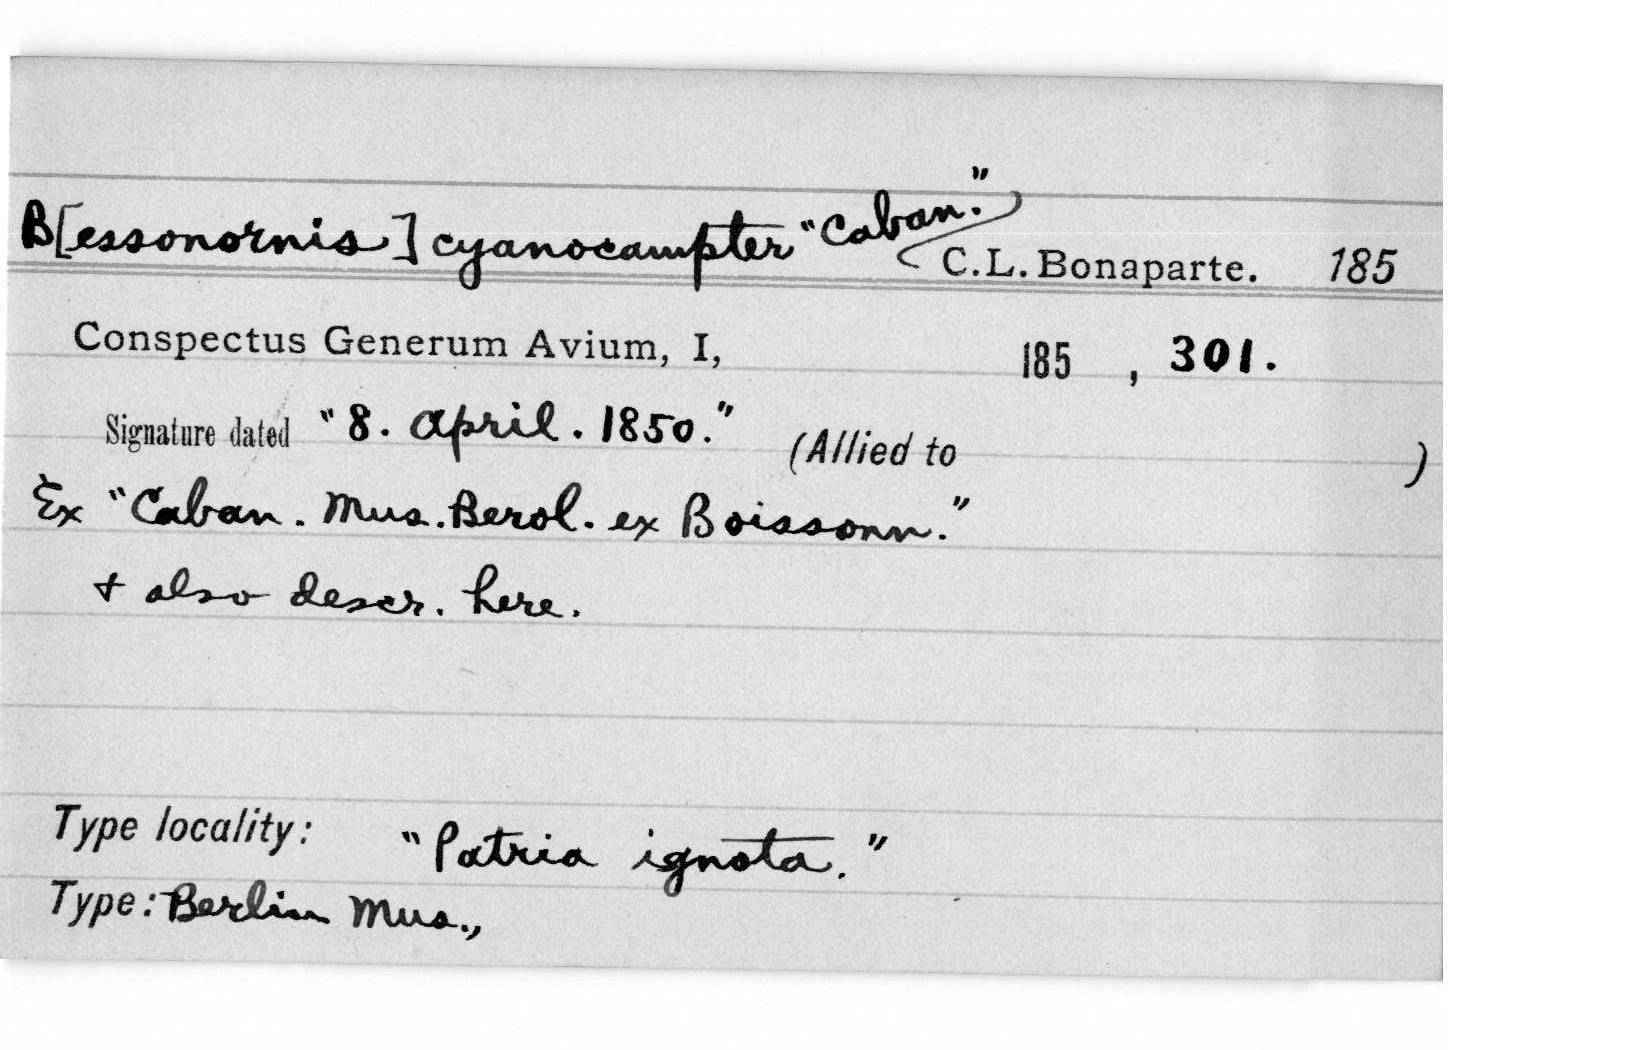 B[essonornis] cyanocampter "Caban."
C.L. Bonaparte. 185
Conspectus Generum Avium, I, 185 , 301.
Signature dated "8. April. 1850." (Allied to )
Ex "Caban. Mus. Berol. ex Boissonn."
+ also descr. here.
Type locality: "Patria ignota."
Type: Berlin Mus.,